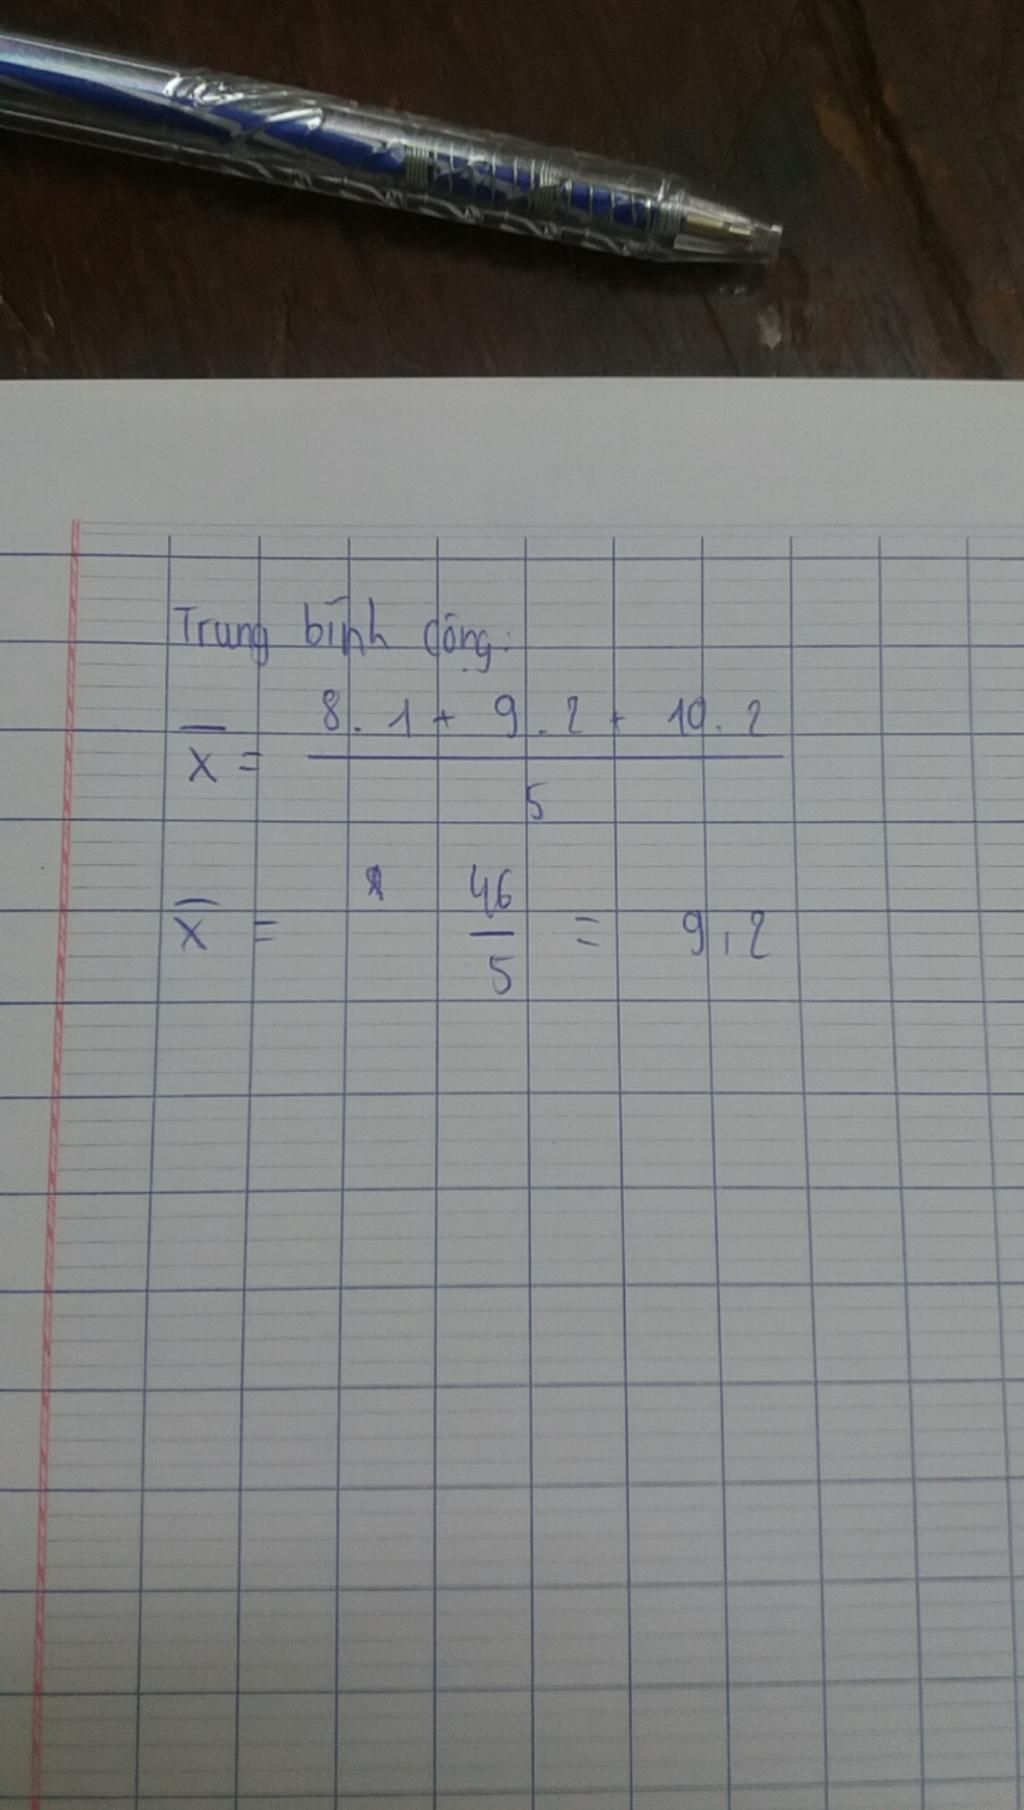 Trung bình cộng:
8.1 + 9.2 + 10.2
X̅ =
5
46
X̅ = = 9,2
5